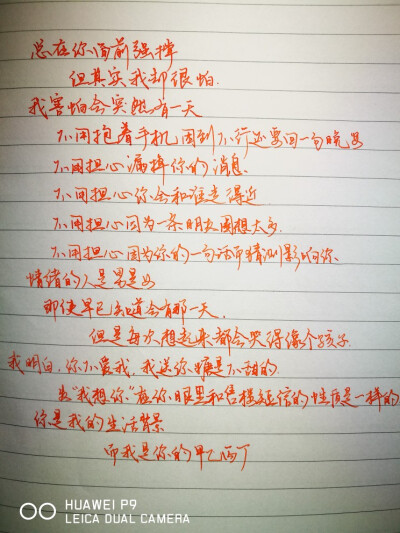 总在你面前强撑
但其实我却很怕.
我害怕会突然有一天
不用抱着手机困到不行还要回一句晚安
不用担心漏掉你的消息、
不用担心你会和谁走得近
不用担心因为一条朋友圈想太多.
不用担心因为你的一句话而猜测影响你、
情绪的人是男是女
即使早已知道会有那一天.
但是每次想起来都会哭得像个孩子.
我明白,你不爱我,我送你糖是不甜的.
发"我想你"在你眼里和售楼短信的性质是一样的
你是我的生活背景
而我是你的甲乙丙丁
HUAWEI P9
LEICA DUAL CAMERA